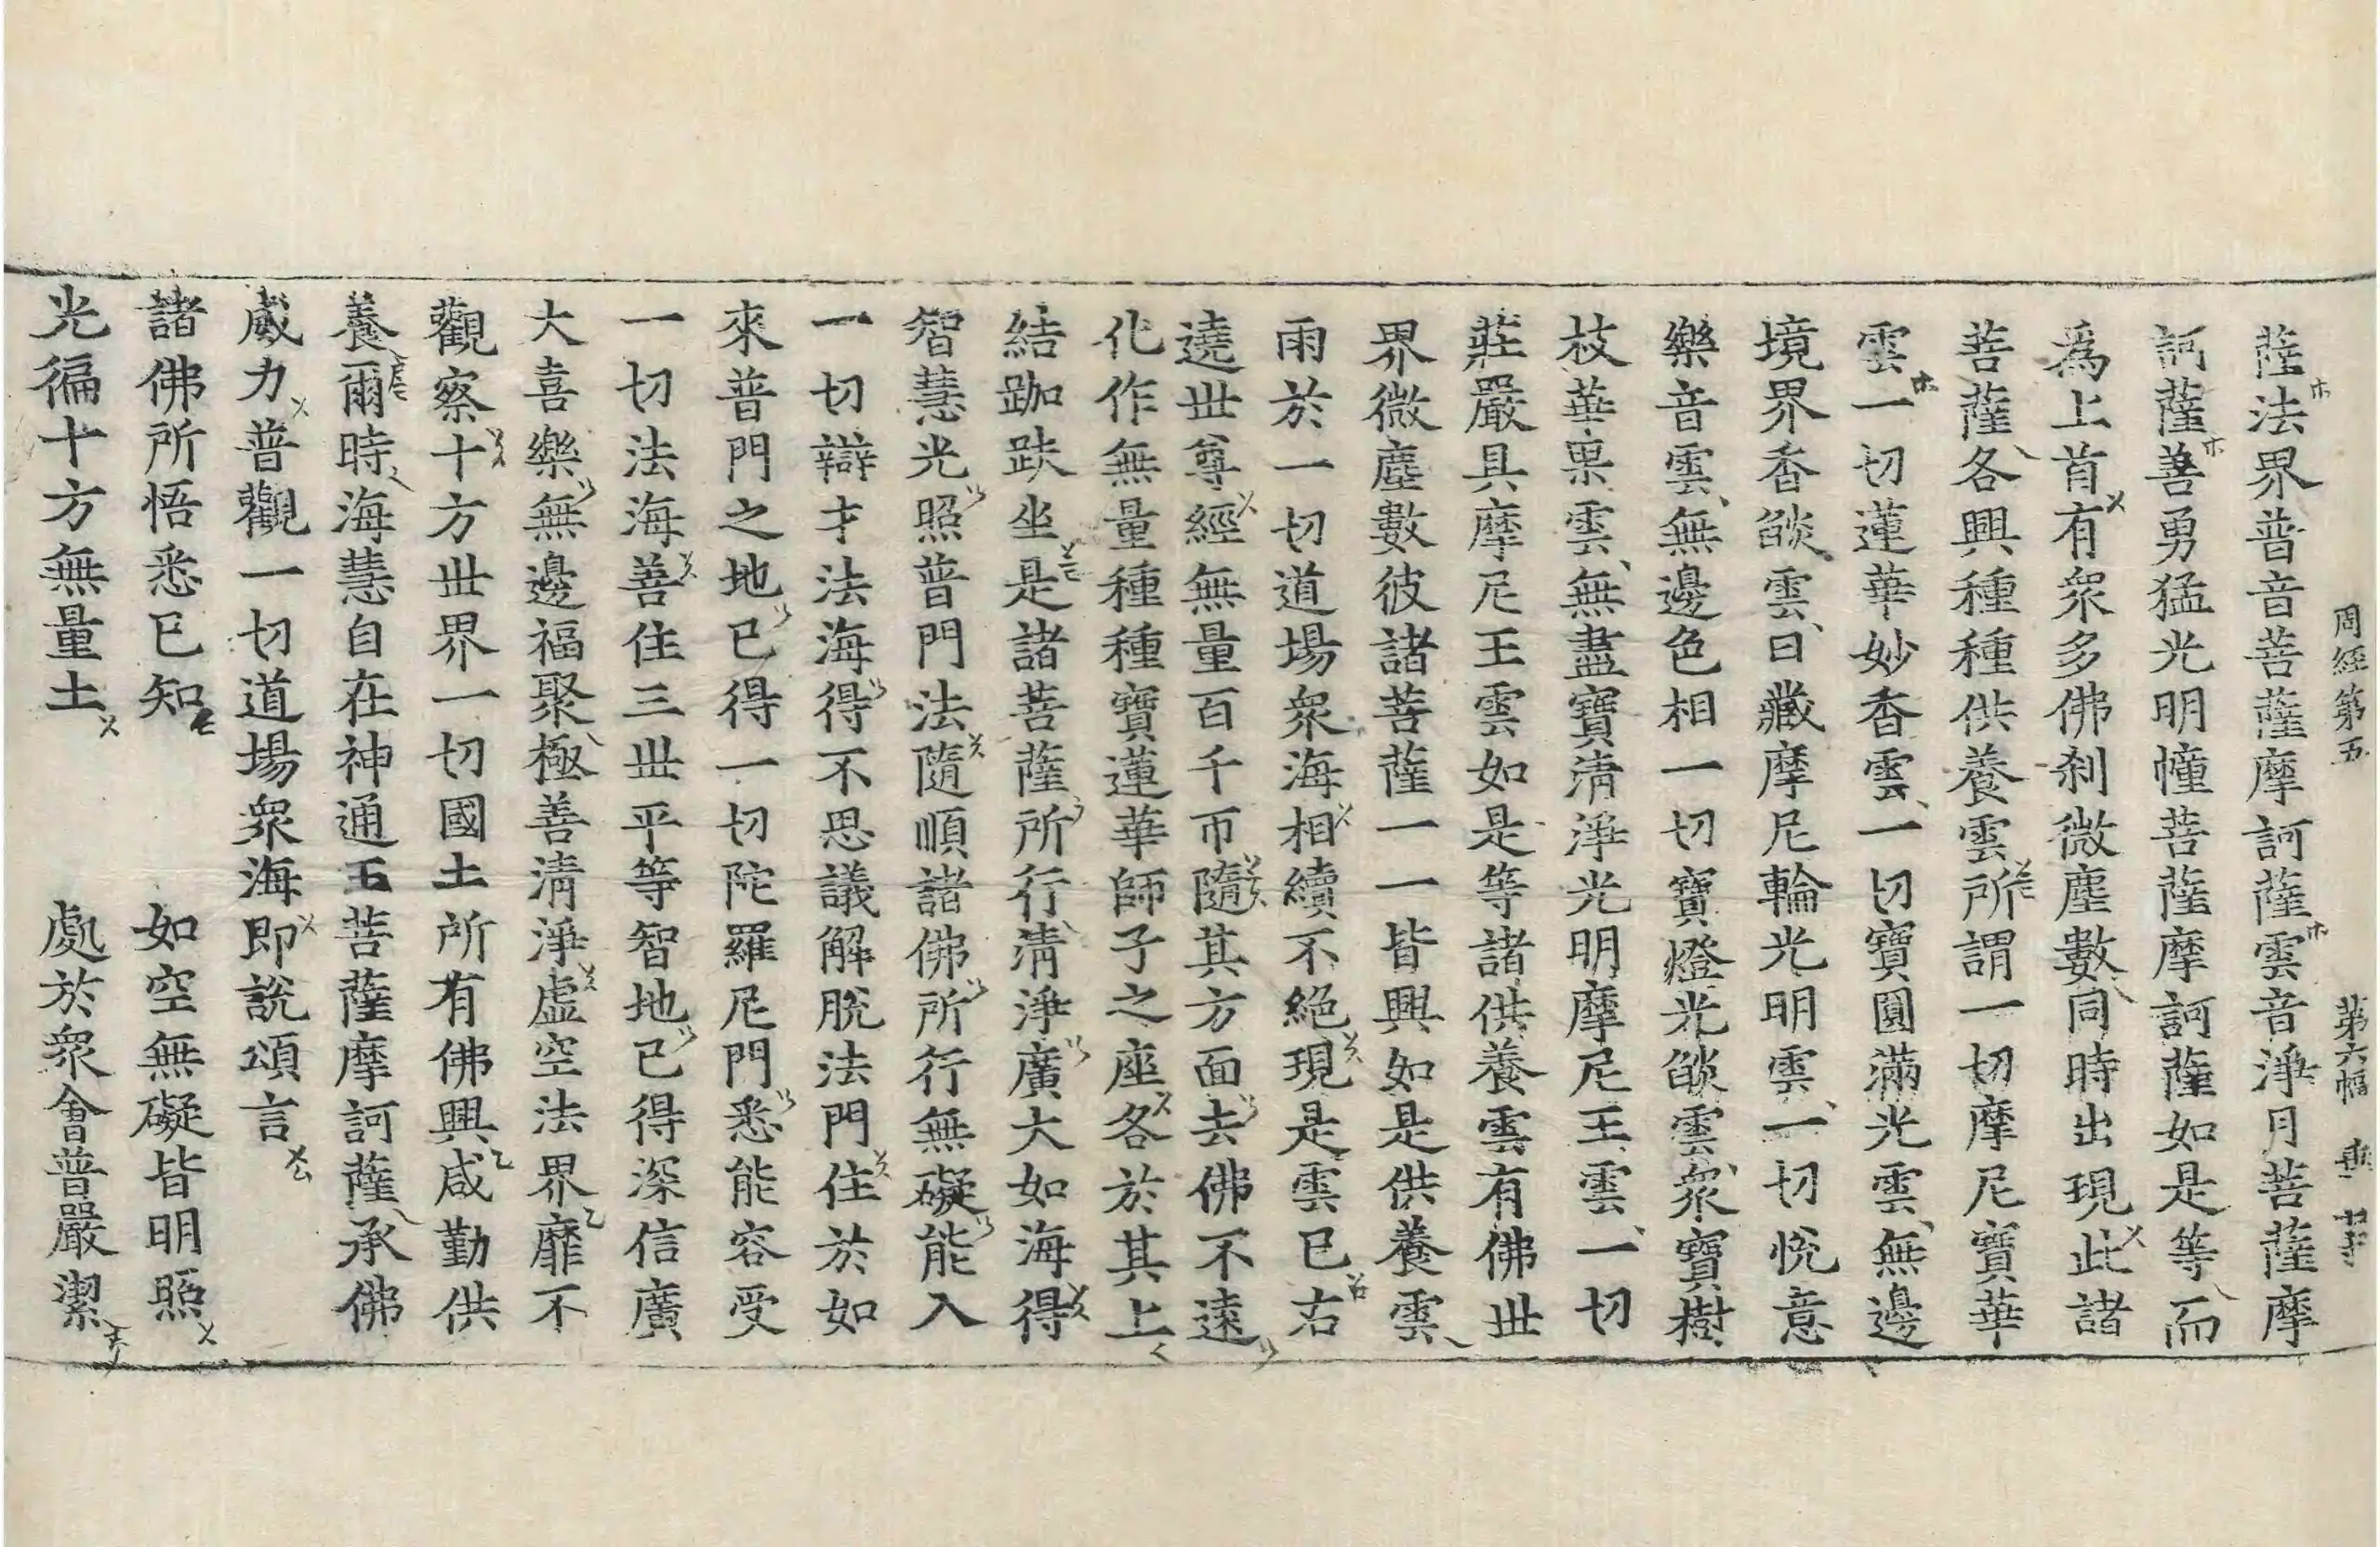 周經第五 第六幅 垂
薩法界普音菩薩摩訶薩雲音淨月菩薩摩
訶薩善勇猛光明幢菩薩摩訶薩如是等而
爲上首有衆多佛刹微塵數同時出現此諸
菩薩各興種種供養雲所謂一切摩尼寶華
雲一切蓮華妙香雲一切寶圓滿光雲無邊
境界香燄雲日藏摩尼輪光明雲一切悅意
樂音雲無邊色相一切寶燈光燄雲衆寶樹
枝華果雲無盡寶清淨光明摩尼王雲一切
莊嚴具摩尼王雲如是等諸供養雲有佛世
界微塵數彼諸菩薩一一皆興如是供養雲
雨於一切道場衆海相續不絕現是雲已右
遶世尊經無量百千帀隨其方面去佛不遠
化作無量種種寶蓮華師子之座各於其上
結跏趺坐是諸菩薩所行清淨廣大如海得
智慧光照普門法隨順諸佛所行無礙能入
一切辯才法海得不思議解脫法門住於如
來普門之地已得一切陀羅尼門悉能容受
一切法海善住三世平等智地已得深信廣
大喜樂無邊福聚極善清淨虛空法界靡不
觀察十方世界一切國土所有佛興咸勤供
養爾時海慧自在神通王菩薩摩訶薩承佛
威力普觀一切道場衆海即說頌言
諸佛所悟悉已知 如空無礙皆明照
光徧十方無量土 處於衆會普嚴潔